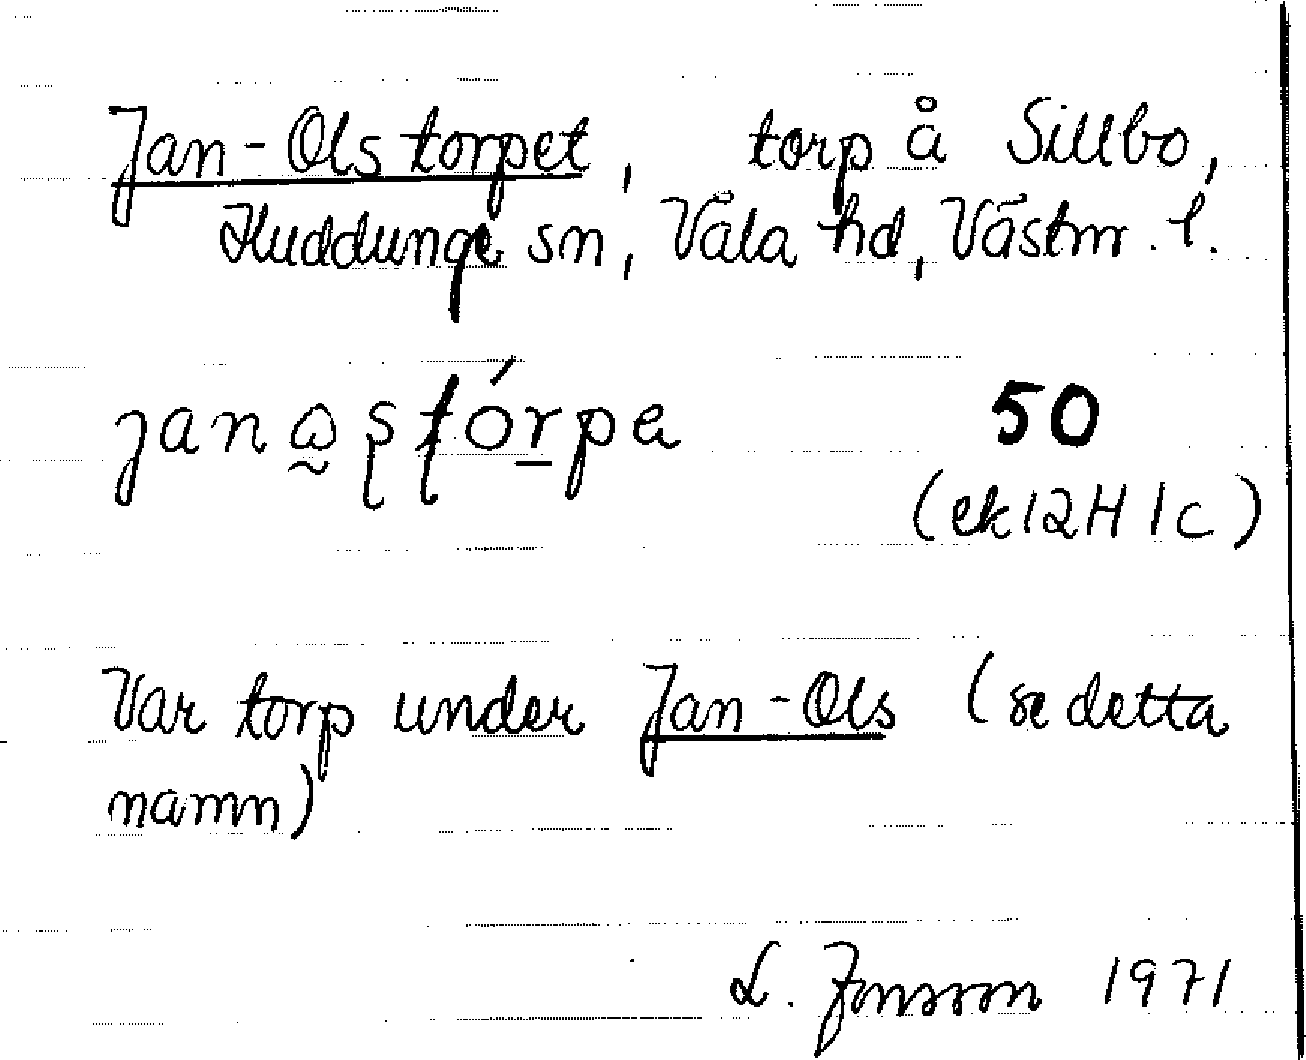 Jan-Olstorpet, torp å Sillbo,
Huddunge sn, Våla hd, Västm. l.
janⱺ̰ʂʈórpa 50
(ek 12H 1c)
Var torp under Jan-Ols (se detta
namn)
L. Jonsson 1971